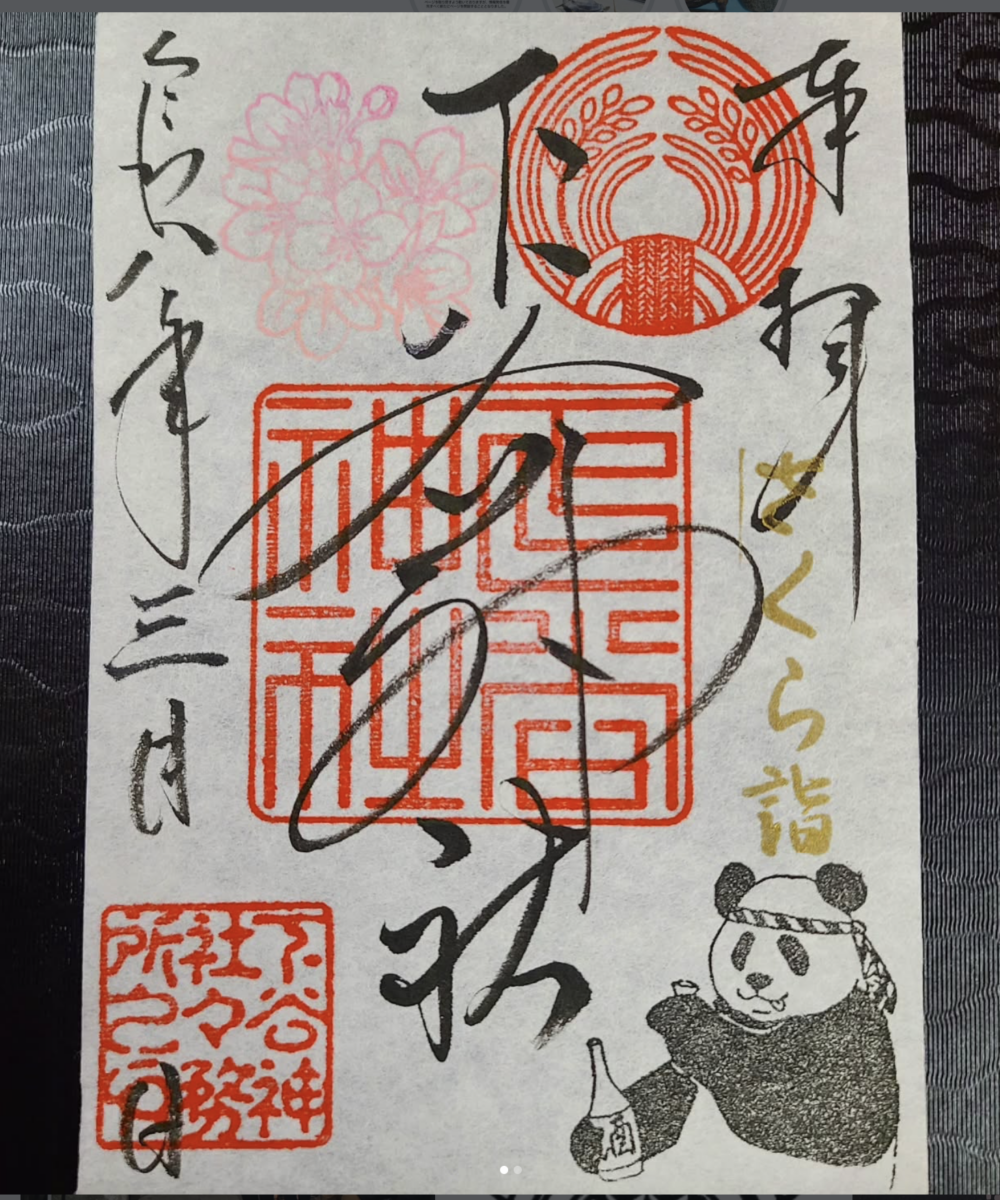 奉拝
さくら詣
下谷神社
下谷神社
令和八年三月
日
下谷神
社々務
所之印
酒